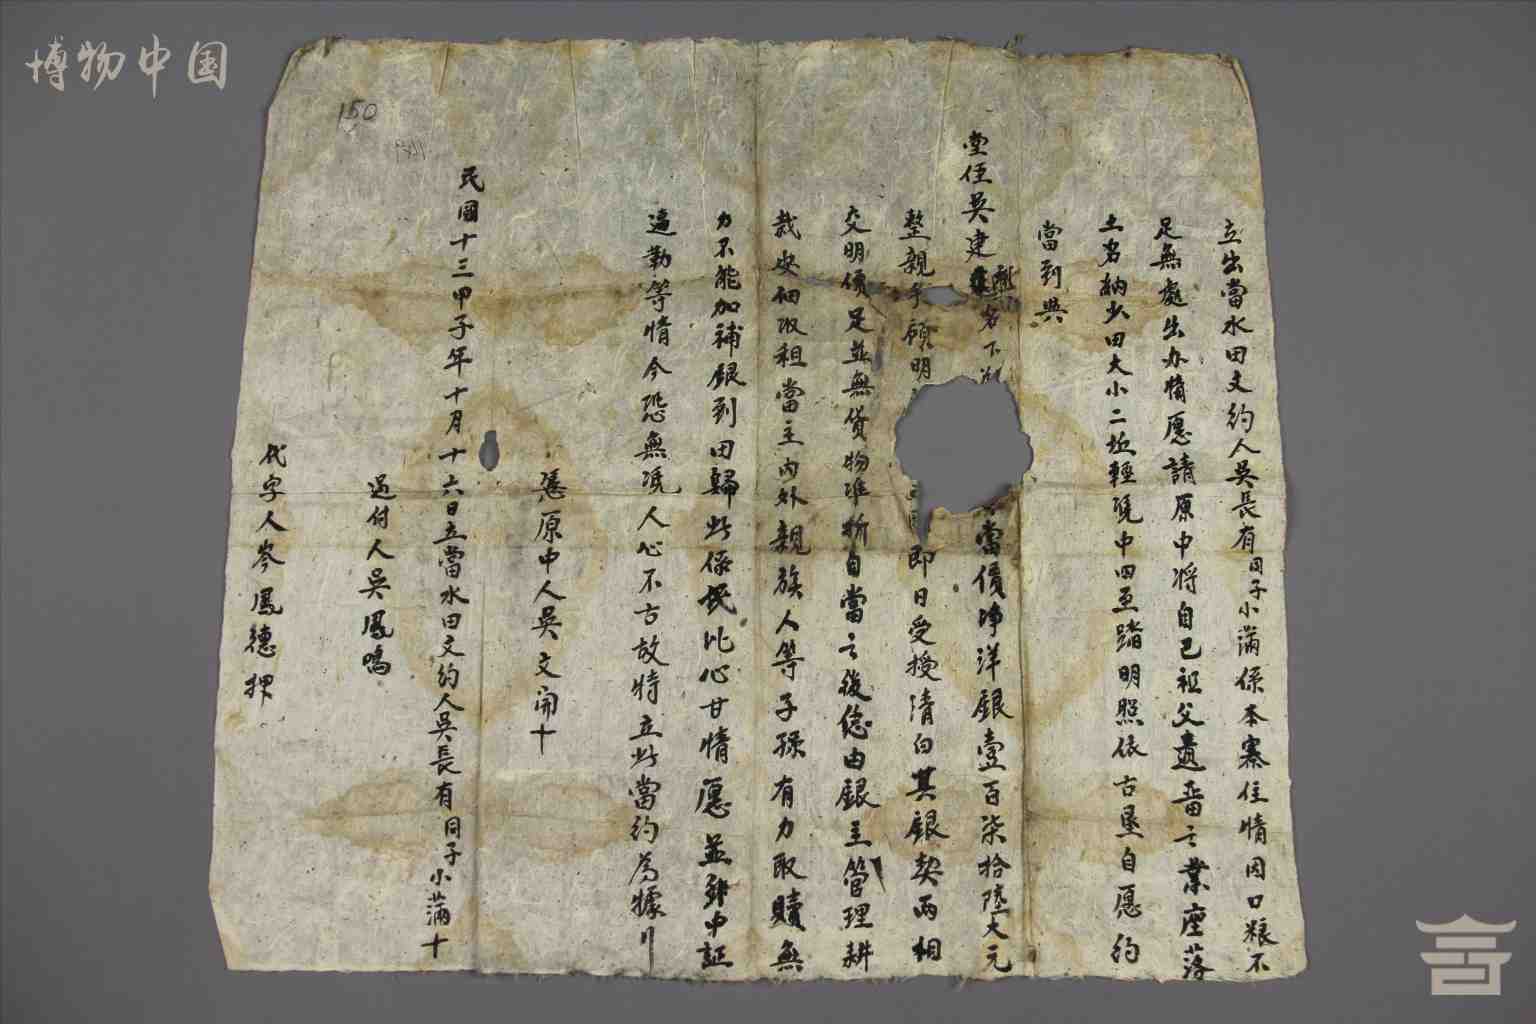 立出當水田文約人吳長有同子小滿係本寨住情因口粮不
足無處出办情愿請原中将自己祖父遺畄之業座落
土名納火田大小二坵輕凭中四至踏明照依古垦自愿约
當到吳
堂侄吳建 名下 當價净洋銀壹百柒拾陸大元
整親手領明 即日受授清白其銀契两相
交明價足並無貨物准折自當之後您由銀主管理耕
栽安佃收租當主内外親族人等子孫有力取贖無
力不能加補銀到田歸此係民比心甘情愿並 中証
逼勒等情今恐無凭人心不古故特立此當约為據
憑原中人吳文開十
民國十三甲子年十月十六日立當水田文约人吳長有同子小滿十
过付人吳鳳鳴
代字人岑鳳德押
150
博物中国